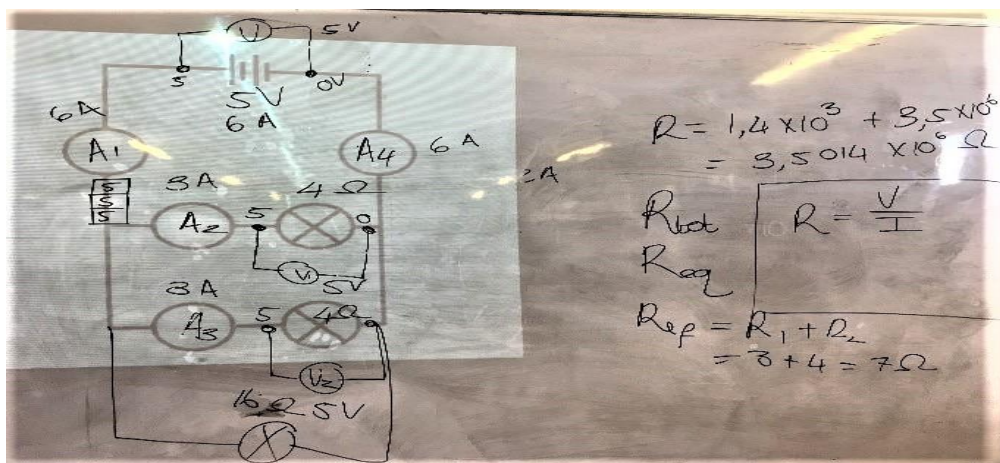 V 5V
5 0V
5V
6A
6A
A1
A4
6A
5
5
5
3A
4Ω
A2
5
0
V1
5V
3A
A3
5
4Ω
V2
16Ω 5V
R = 1,4 ×10³ + 3,5 ×10⁶
= 3,5014 ×10⁶ Ω
Rtot
R = V/I
Req
Ref = R₁ + R₂
= 3 + 4 = 7Ω